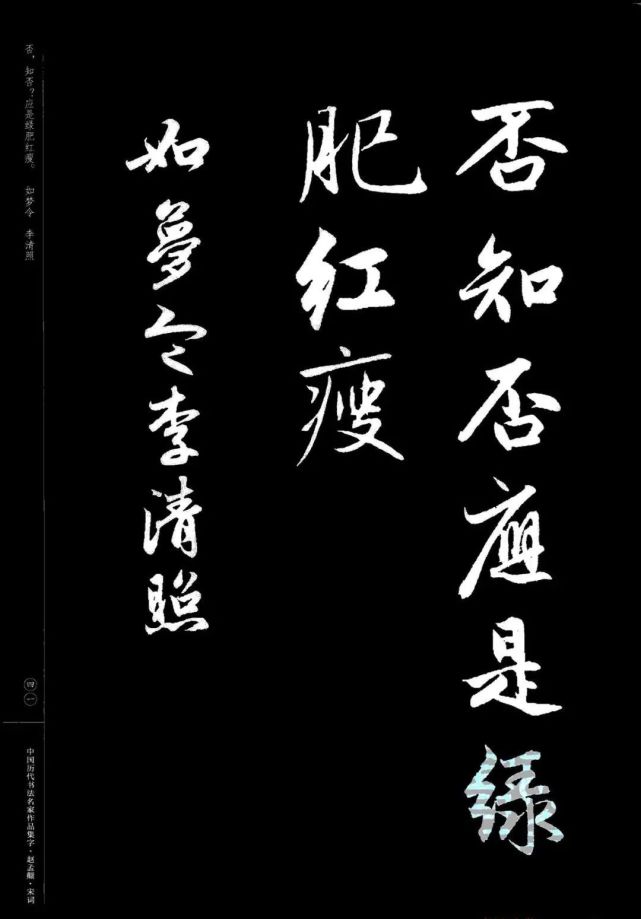 否知否應是绿
肥红瘦
如夢令李清照
否，知否？应是绿肥红瘦。 如梦令 李清照
四一
中国历代书法名家作品集字·赵孟頫·宋词